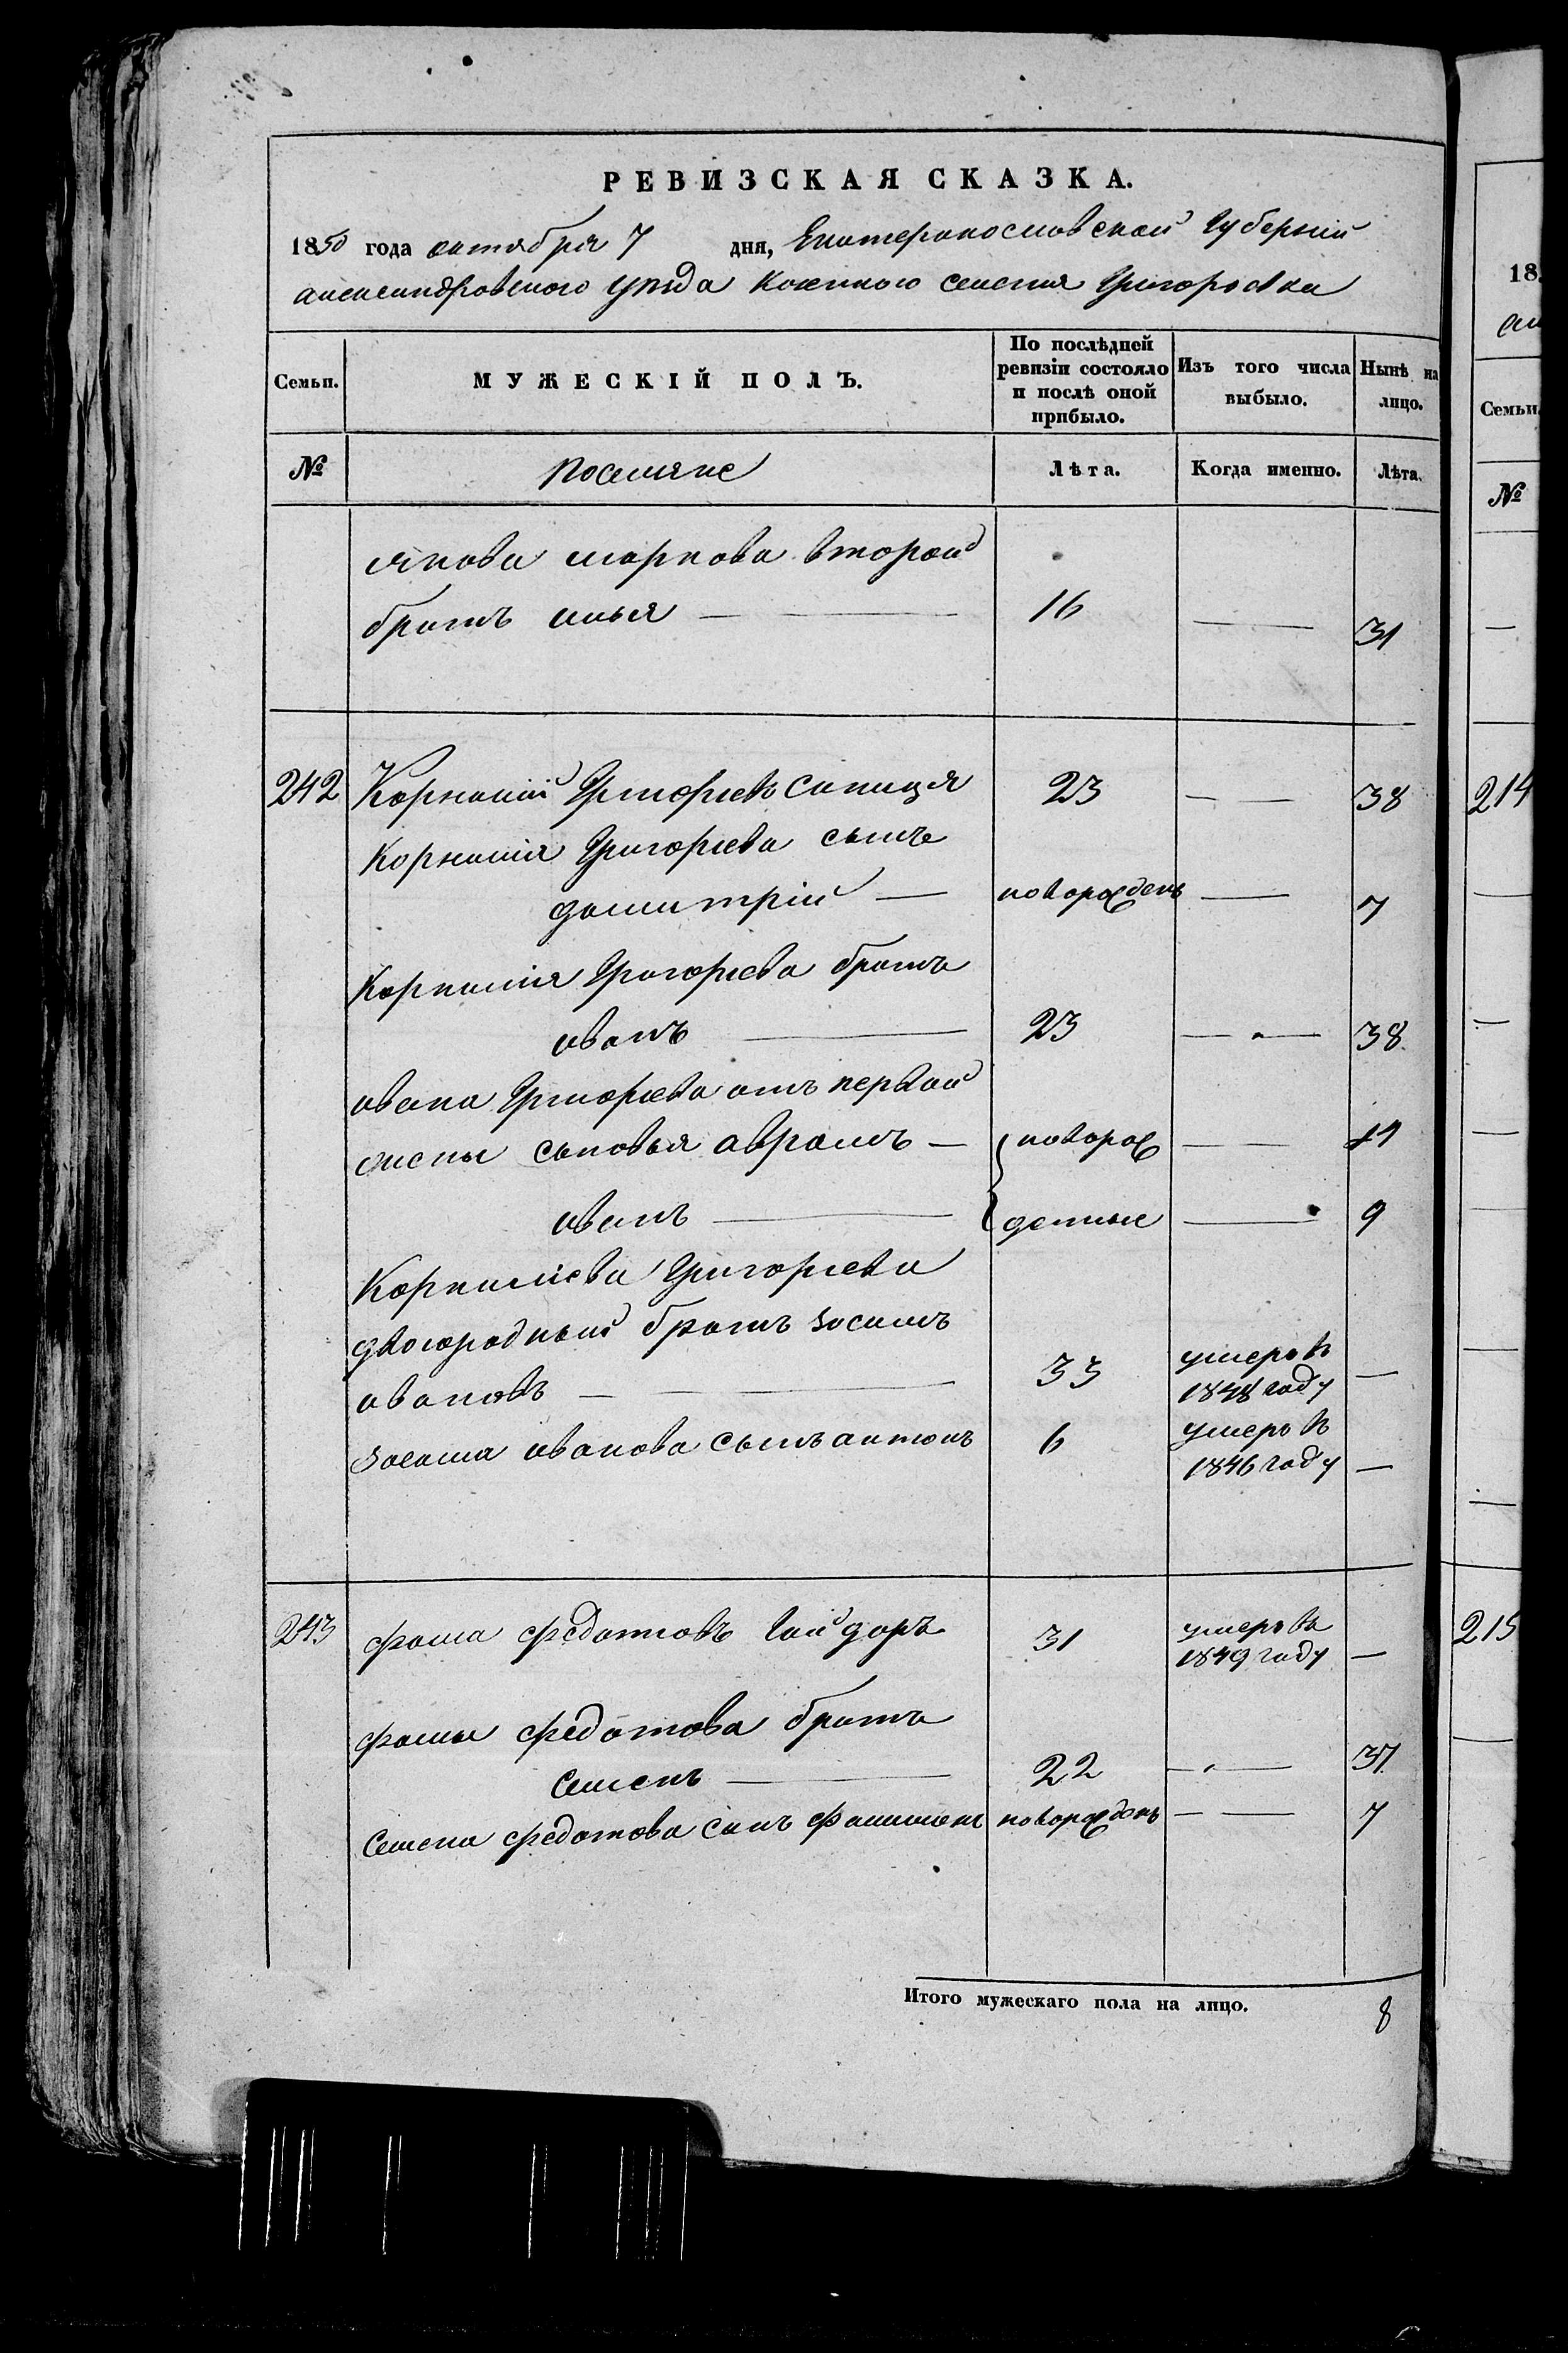 РЕВИЗСКАЯ СКАЗКА.
1850 года октября 7 дня, Екатеринославской Губернии
александровского уѣзда Казенного селения Григоровки
Семьи. МУЖЕСКІЙ ПОЛЪ. По послѣдней ревизіи состояло и послѣ оной прибыло. Изъ того числа выбыло. Нынѣ на лицо.
№ поселяне Лѣта. Когда именно. Лѣта.
якова маркова второй
братъ илья — — 16 — 31
242 Корнилий Григориевъ синиця 23 — — 38
корнилия Григориева сынъ
дмитрій — новорожденъ — 7
Корнилия Григориева братъ
иванъ — 23 — — 38.
ивана Григориева отъ первой
жены сыновья аврамъ — новорож — — 11
иванъ — денные — 9
Корнилиева Григориева
двоюродный братъ зосимъ
ивановъ — — 33 умеръ в 1848 году —
зосима иванова сынъ антонъ 6 умеръ в 1846 году —
243 фома федотовъ гайдаръ 31 умеръ в 1849 году —
фомы федотова братъ
Семенъ — 22 — — 37
Семена федотова сынъ филимонъ новорожденъ — — 7
Итого мужескаго пола на лицо. 8
18
Семьи.
№
214
215